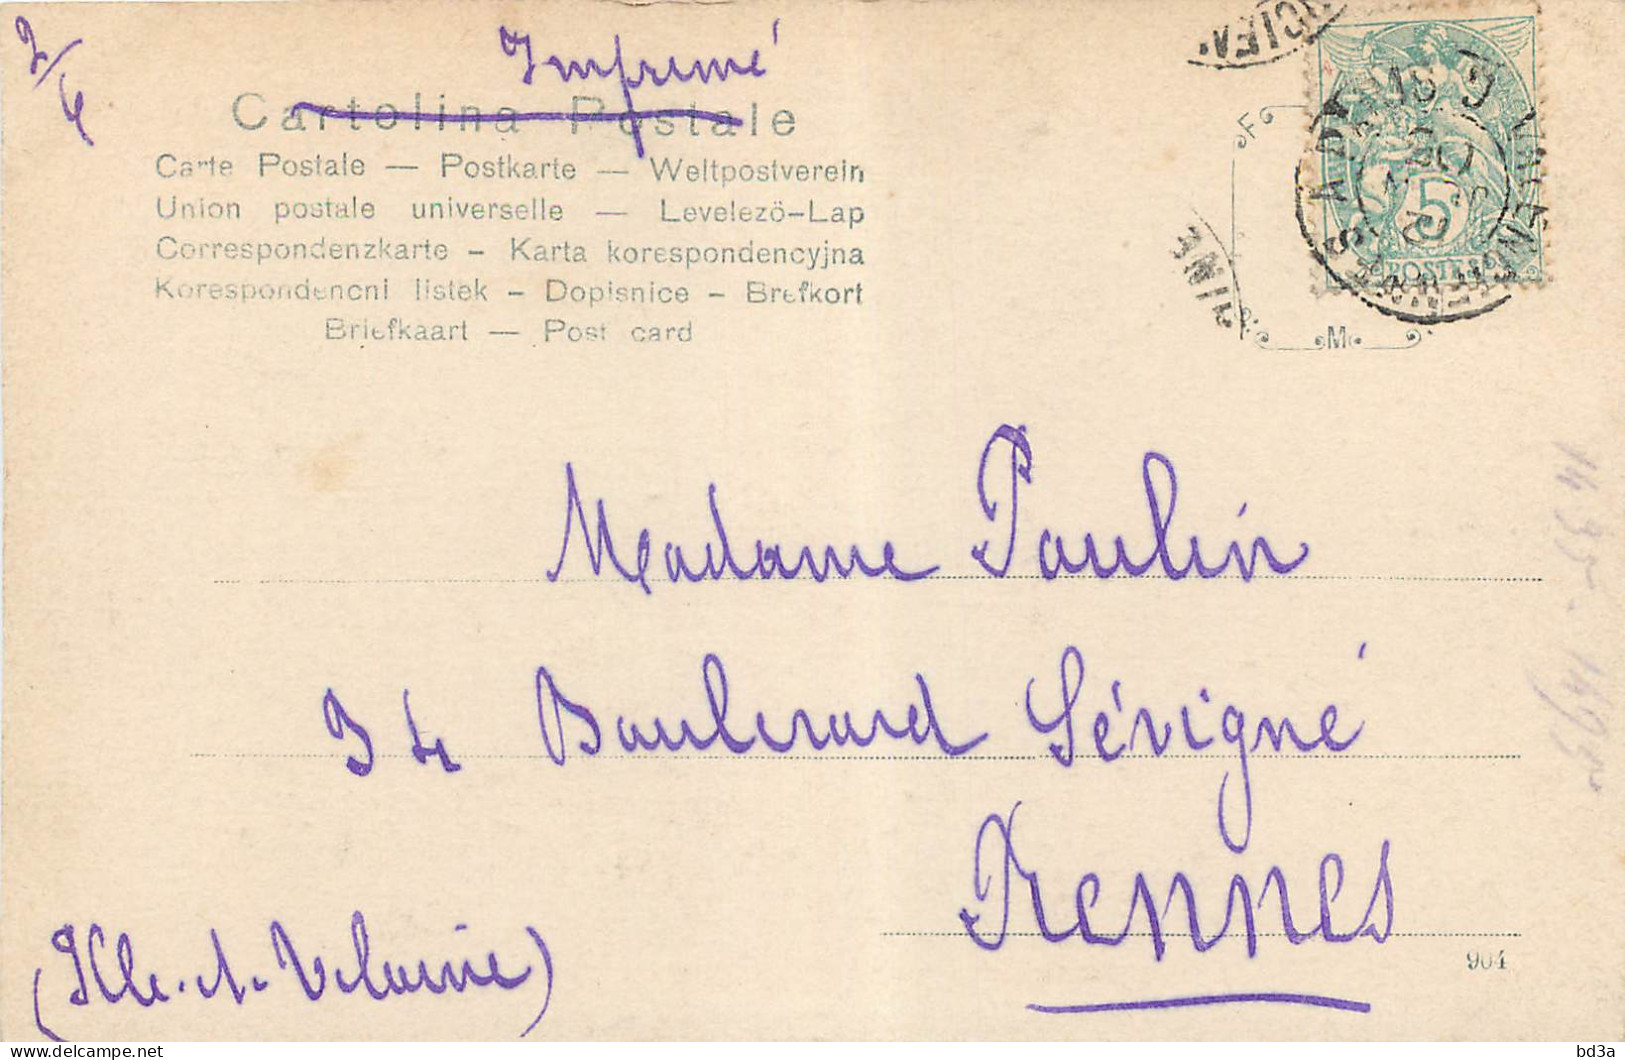 2/4
Imprimé
Cartolina Postale
Carte Postale — Postkarte — Weltpostverein
Union postale universelle — Levelezö-Lap
Correspondenzkarte – Karta korespondencyjna
Korespondencni listek – Dopisnice – Brefkort
Briefkaart — Post card
F
M
5
POSTES
Madame Paulin
34 Boulevard Sévigné
Rennes
(Ille-et-Vilaine)
904
bd3a